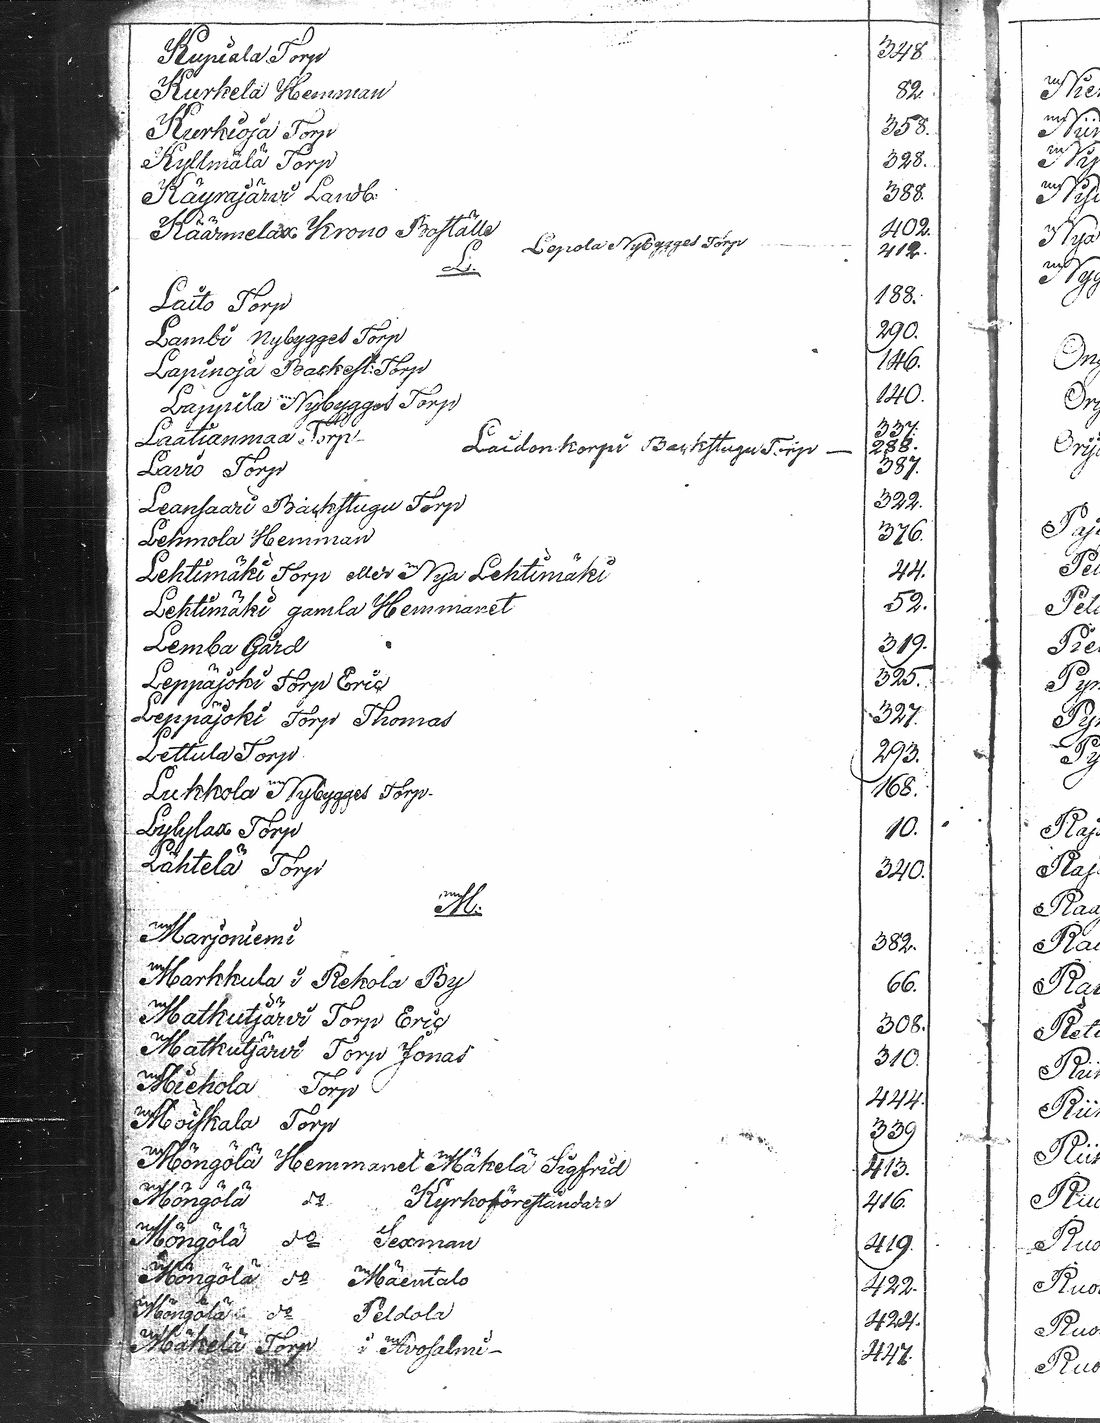 Kupiala Torp 348
Kurkela Hemman 82.
Kurkioja Torp 358.
Kyllmälä Torp 328.
Käyräjärvi Landb. 388.
Käärmelax Krono Boställe 402.
Lepola Nybygges Torp 412.
L.
Laito Torp 188.
Lambi Nybygges Torp 290.
Lapinoja Backst. Torp 146.
Lappila Nybygges Torp 140.
Laatianmaa Torp 337.
Laidonkorpi Backstugu Torp — 288.
Lavio Torp 387.
Leansaari Backstugu Torp 322.
Lehmola Hemman 376.
Lehtimäki Torp eller Nya Lehtimäki 44.
Lehtimäki gamla Hemmanet 52.
Lemba Gård 319.
Leppäjoki Torp Eric 325.
Leppäjoki Torp Thomas 327.
Lettula Torp 293.
Lukkola Nybygges Torp 168.
Lylylax Torp 10.
Lähtelä Torp 340.
M.
Marjoniemi 382.
Markkula i Rekola By 66.
Matkutjärvi Torp Eric 308.
Matkutjärvi Torp Jonas 310.
Miehola Torp 444.
Moiskala Torp 339
Möngölä Hemmanet Mäkelä Sigfrid 413.
Möngölä do Kyrkoföreståndare 416.
Möngölä do Sexman 419.
Möngölä do Mäentalo 422.
Möngölä do Peldola 424.
Mäkelä Torp i 447.